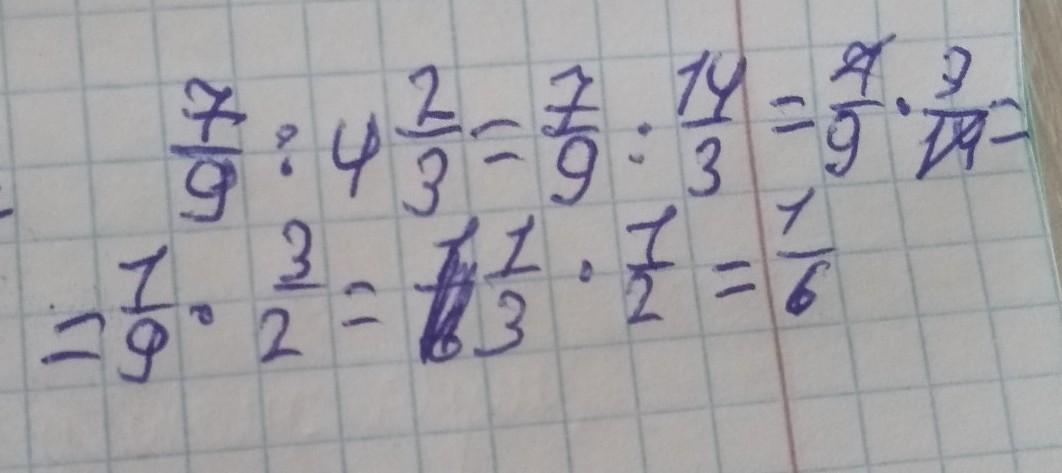 7/9 : 4 2/3 = 7/9 : 14/3 = 7/9 · 3/14 =
= 1/9 · 3/2 = 1/3 · 1/2 = 1/6